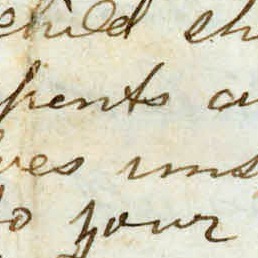 child sh
pents a
ves uns
to your